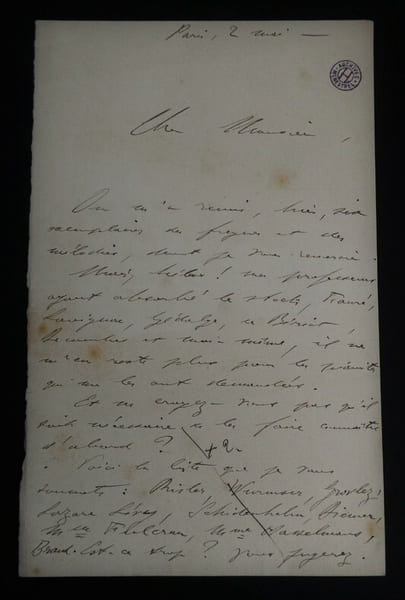 Paris, 2 mai —
ARCHIVES
H
Cher Monsieur,
On m'a remis, hier, six
exemplaires des fugues et des
mélodies, dont je vous remercie.
Mais, hélas ! nos professeurs
ayant absorbé le stock, Fauré,
Lavignac, Gédalge, de Bériot,
et moi-même, il ne
m'en reste plus pour les pianistes
qui me les ont demandés.
Et ne croyez-vous pas qu'il
soit nécessaire de les faire connaître
d'abord ?
Voici la liste que je vous
soumets : Risler, Wurmser, Grovlez,
Lazare Lévy, Schidenhelm, Diémer,
Mme Mme Hasselmans,
Braud. Est-ce trop ? Vous jugerez.